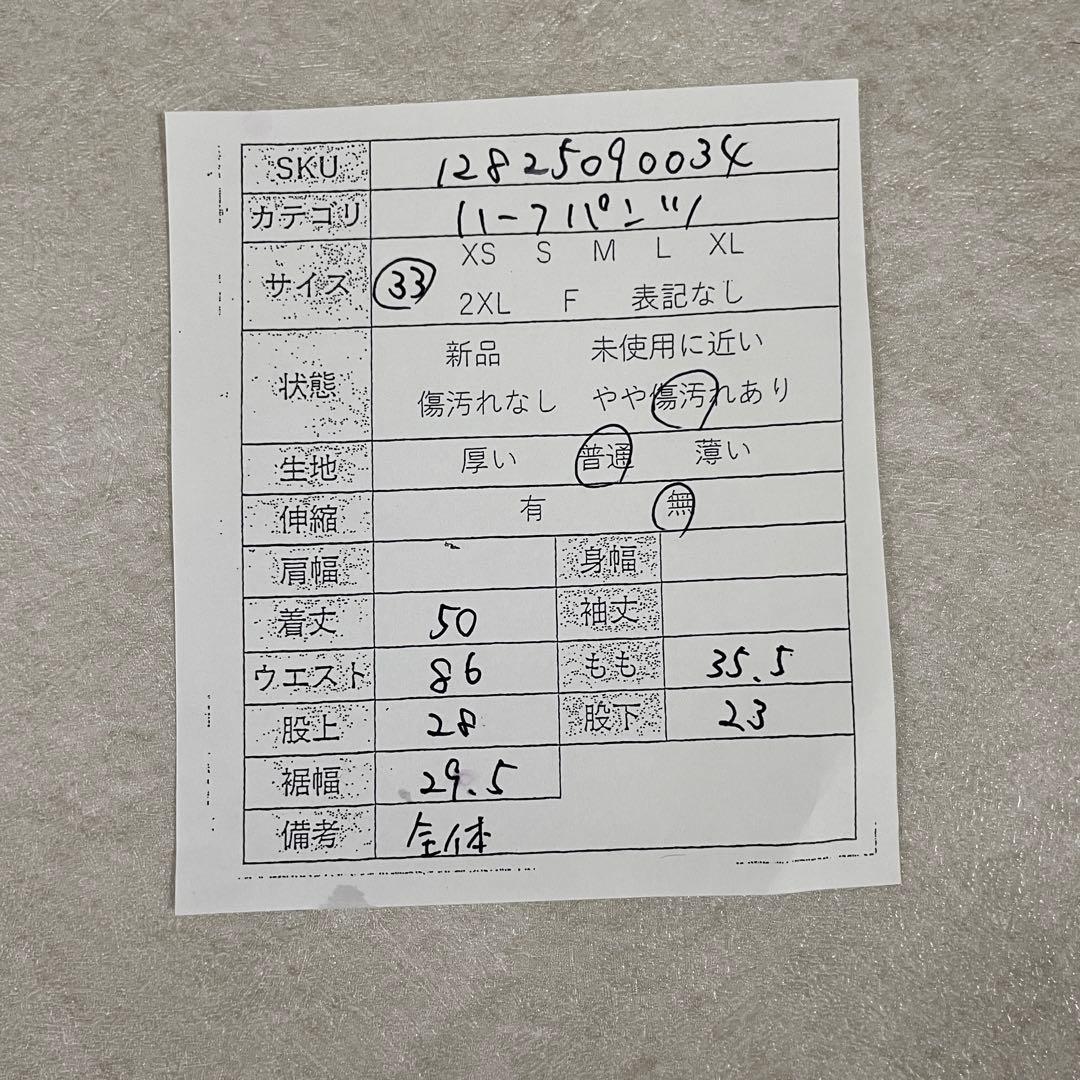 SKU 12825090034
カテゴリ ハーフパンツ
サイズ 33 XS S M L XL
2XL F 表記なし
状態 新品 未使用に近い
傷汚れなし やや傷汚れあり
生地 厚い 普通 薄い
伸縮 有 無
肩幅 身幅
着丈 50 袖丈
ウエスト 86 もも 35.5
股上 28 股下 23
裾幅 29.5
備考 全体